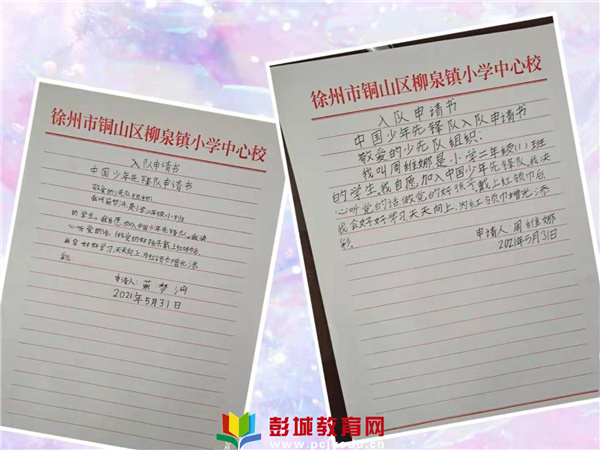 徐州市铜山区柳泉镇小学中心校
入队申请书
中国少年先锋队申请书
敬爱的少先队组织:
的学生。我自愿加入中国少年先锋队。我决
心听党的话,做党的好孩子戴上红领巾后,
我会好好学习,天天向上,为红领巾增光添
彩。
申请人:
2021年5月31日
徐州市铜山区柳泉镇小学中心校
入队申请书
中国少年先锋队入队申请书
敬爱的少先队组织:
我叫周维娜是小学二年级(1)班
的学生我自愿加入中国少年先锋队我决
心听党的话做党的好孩子戴上红领巾后
我会好好学习天天向上,为红领巾增光添
彩。
申请人 周维娜
2021年5月31日
彭城教育网